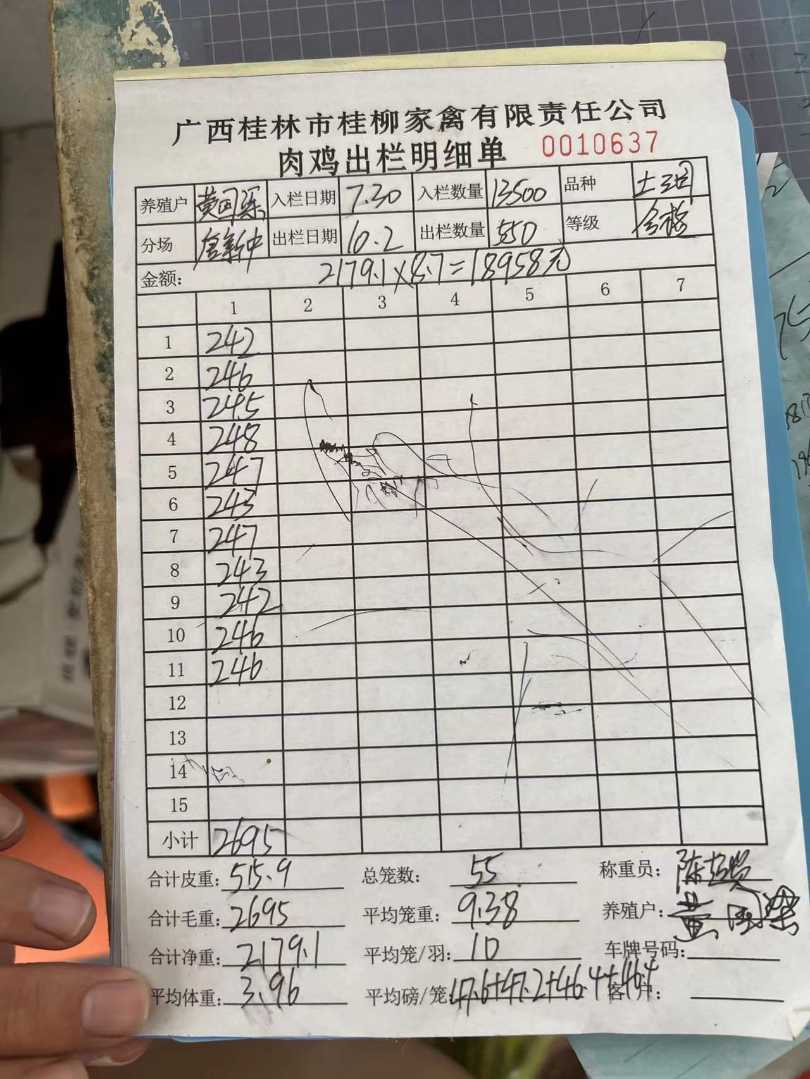 广西桂林市桂柳家禽有限责任公司
肉鸡出栏明细单 0010637
养殖户 入栏日期 7.30 入栏数量 13500 品种 土
分场 出栏日期 10.2 出栏数量 550 等级 合格
金额: 2179.1×8.7=18958元
1 2 3 4 5 6 7
1 242
2 246
3 245
4 248
5 247
6 243
7 247
8 243
9 242
10 246
11 246
12
13
14
15
小计 2695
合计皮重: 515.9 总笼数: 55 称重员: 陈
合计毛重: 2695 平均笼重: 9.38 养殖户: 黄
合计净重: 2179.1 平均笼/羽: 10 车牌号码:
平均体重: 3.96 平均磅/笼: 47.6+47.2+46.4+46.4 客户: